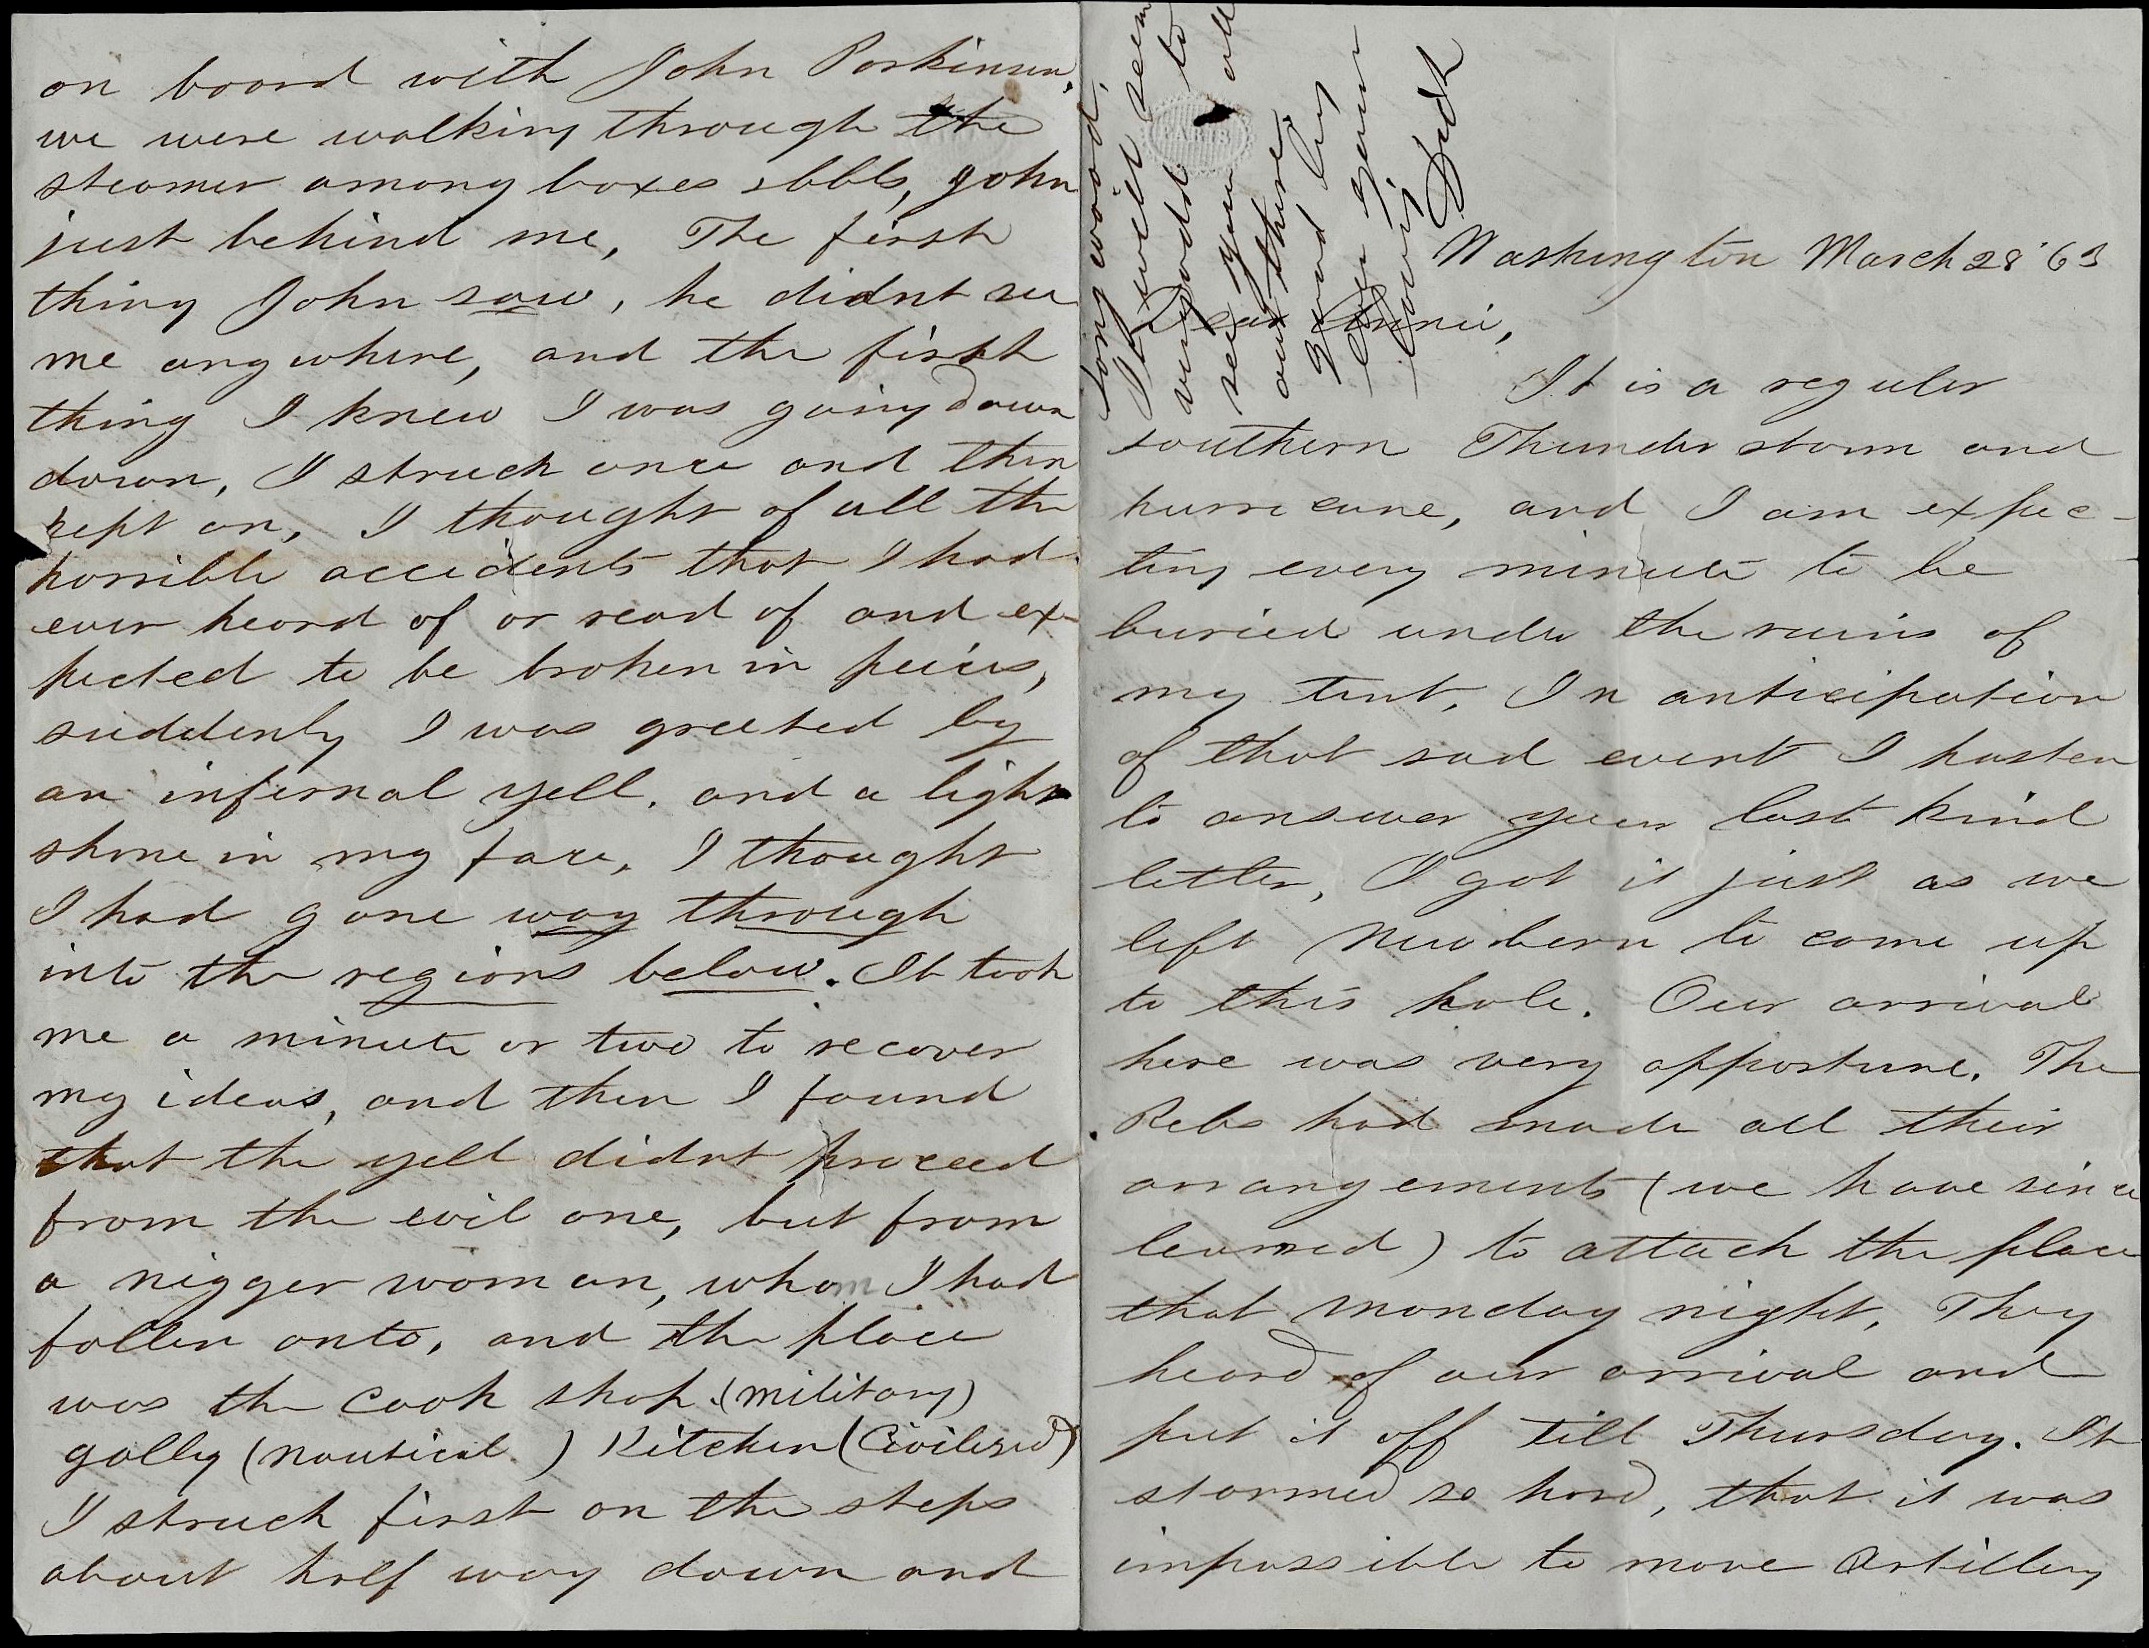 on board with John Parkinson.
we were walking through the
steamer among boxes &bbls, John
just behind me, The first
thing John saw, he didnt see
me anywhere, and the first
thing I knew I was going down
down, I struck once and then
kept on, I thought of all the
horrible accidents that I had
ever heard of or read of and ex-
pected to be broken in peices,
suddenly I was greeted by
an infernal yell, and a light
shone in my face, I thought
I had gone way through
into the regions below. It took
me a minute or two to recover
my ideas, and then I found
that the yell didnt proceed
from the evil one, but from
a nigger woman, whom I had
fallen onto, and the place
was the cook shop (military)
gally (nautical) Kitchen (Civilized)
I struck first on the steps
about half way down and
long wood,
It will seem
very odd to
see you all
out there.
Good by
Ever your
loving
Dick
PARIS
Washington March 28 '63
Dear Annie,
It is a regular
southern Thunder storm and
hurricane, and I am expec-
ting every minute to be
buried under the ruins of
my tent, In anticipation
of that sad event I hasten
to answer your last kind
letter, I got it just as we
left Newbern to come up
to this hole. Our arrival
here was very opportune. The
Rebs had made all their
arrangements (we have since
learned) to attack the place
that Monday night, They
heard of our arrival and
put it off till Thursday. It
stormed so hard, that it was
impossible to move Artillery